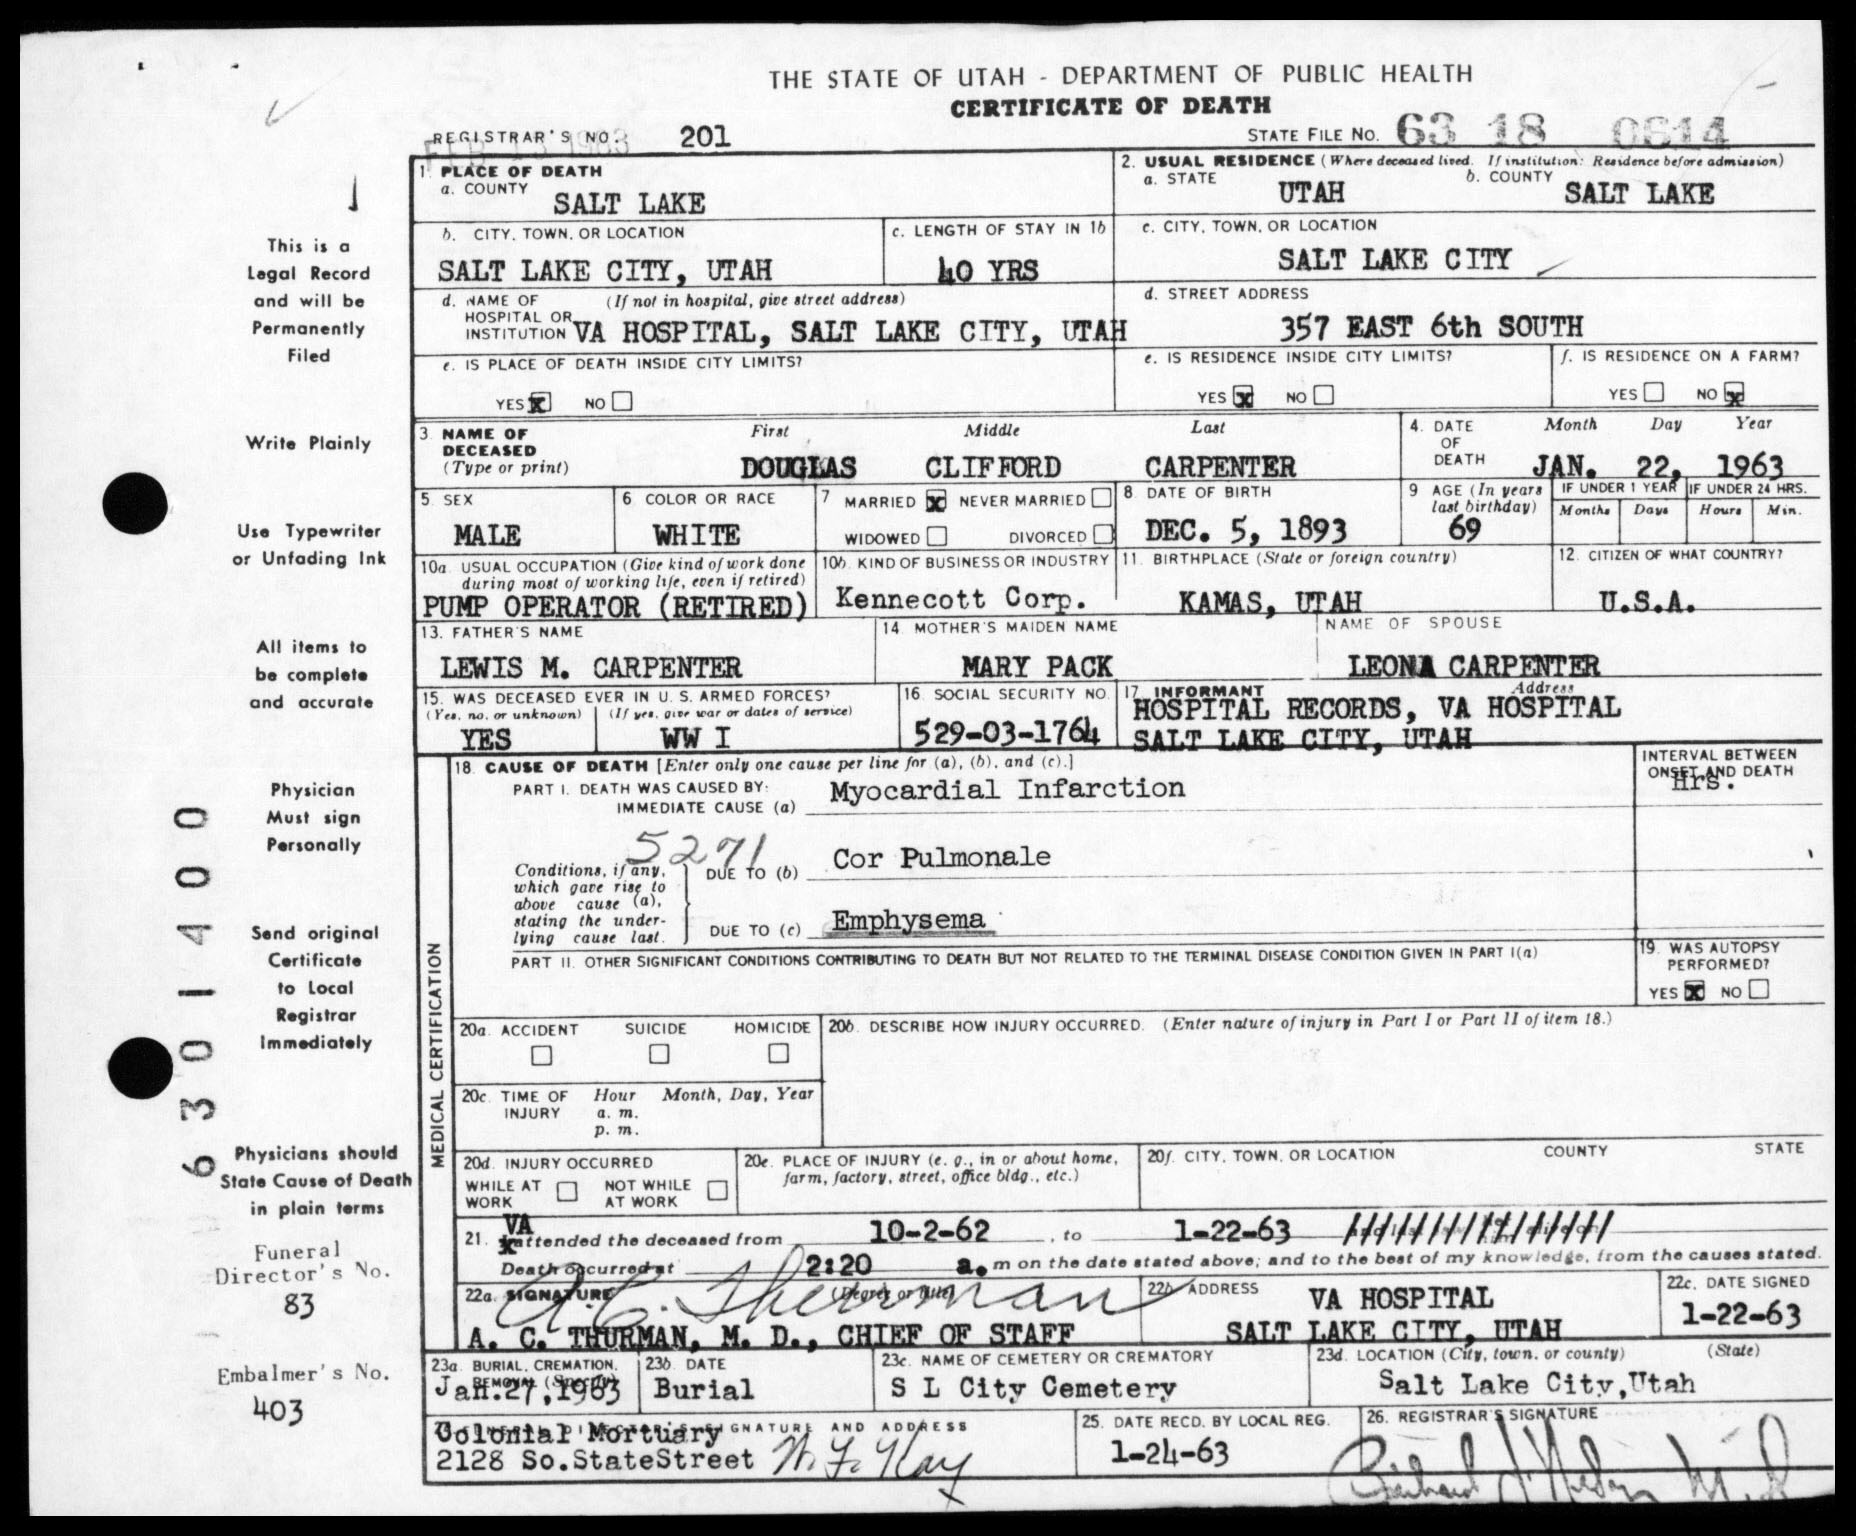 THE STATE OF UTAH - DEPARTMENT OF PUBLIC HEALTH
CERTIFICATE OF DEATH
REGISTRAR'S NO. 201
STATE FILE NO. 63 18 0614
FEB 13 1963
1. PLACE OF DEATH
a. COUNTY
SALT LAKE
2. USUAL RESIDENCE (Where deceased lived. If institution: Residence before admission)
a. STATE UTAH b. COUNTY SALT LAKE
b. CITY, TOWN, OR LOCATION
SALT LAKE CITY, UTAH
c. LENGTH OF STAY IN 1b
40 YRS
c. CITY, TOWN, OR LOCATION
SALT LAKE CITY
d. NAME OF (If not in hospital, give street address)
HOSPITAL OR
INSTITUTION VA HOSPITAL, SALT LAKE CITY, UTAH
d. STREET ADDRESS
357 EAST 6th SOUTH
e. IS PLACE OF DEATH INSIDE CITY LIMITS?
YES X NO
e. IS RESIDENCE INSIDE CITY LIMITS?
YES X NO
f. IS RESIDENCE ON A FARM?
YES NO X
3. NAME OF DECEASED (Type or print)
First Middle Last
DOUGLAS CLIFFORD CARPENTER
4. DATE OF DEATH
Month Day Year
JAN. 22, 1963
5. SEX
MALE
6. COLOR OR RACE
WHITE
7 MARRIED X NEVER MARRIED
WIDOWED DIVORCED
8. DATE OF BIRTH
DEC. 5, 1893
9 AGE (In years last birthday)
69
IF UNDER 1 YEAR IF UNDER 24 HRS.
Months Days Hours Min.
10a. USUAL OCCUPATION (Give kind of work done
during most of working life, even if retired)
PUMP OPERATOR (RETIRED)
10b. KIND OF BUSINESS OR INDUSTRY
Kennecott Corp.
11. BIRTHPLACE (State or foreign country)
KAMAS, UTAH
12. CITIZEN OF WHAT COUNTRY?
U.S.A.
13. FATHER'S NAME
LEWIS M. CARPENTER
14. MOTHER'S MAIDEN NAME
MARY PACK
NAME OF SPOUSE
LEONA CARPENTER
15. WAS DECEASED EVER IN U. S. ARMED FORCES?
(Yes, no, or unknown) (If yes, give war or dates of service)
YES WW I
16. SOCIAL SECURITY NO.
529-03-1764
17. INFORMANT Address
HOSPITAL RECORDS, VA HOSPITAL
SALT LAKE CITY, UTAH
MEDICAL CERTIFICATION
18. CAUSE OF DEATH [Enter only one cause per line for (a), (b), and (c).]
INTERVAL BETWEEN
ONSET AND DEATH
PART I. DEATH WAS CAUSED BY:
IMMEDIATE CAUSE (a) Myocardial Infarction
Hrs.
5271
Conditions, if any,
which gave rise to
above cause (a),
stating the under-
lying cause last.
DUE TO (b) Cor Pulmonale
DUE TO (c) Emphysema
PART II. OTHER SIGNIFICANT CONDITIONS CONTRIBUTING TO DEATH BUT NOT RELATED TO THE TERMINAL DISEASE CONDITION GIVEN IN PART I(a)
19. WAS AUTOPSY
PERFORMED?
YES X NO
20a. ACCIDENT SUICIDE HOMICIDE
20b. DESCRIBE HOW INJURY OCCURRED. (Enter nature of injury in Part I or Part II of item 18.)
20c. TIME OF INJURY
Hour Month, Day, Year
a. m.
p. m.
20d. INJURY OCCURRED
WHILE AT WORK NOT WHILE AT WORK
20e. PLACE OF INJURY (e. g., in or about home,
farm, factory, street, office bldg., etc.)
20f. CITY, TOWN, OR LOCATION COUNTY STATE
VA
21. attended the deceased from 10-2-62, to 1-22-63
Death occurred at 2:20 a. m on the date stated above; and to the best of my knowledge, from the causes stated.
22a. SIGNATURE (Degree or title)
A. C. THURMAN, M. D., CHIEF OF STAFF
22b. ADDRESS
VA HOSPITAL
SALT LAKE CITY, UTAH
22c. DATE SIGNED
1-22-63
23a. BURIAL, CREMATION,
REMOVAL (Specify)
Jan.27,1963
23b. DATE
Burial
23c. NAME OF CEMETERY OR CREMATORY
S L City Cemetery
23d. LOCATION (City, town, or county) (State)
Salt Lake City,Utah
SIGNATURE AND ADDRESS
Colonial Mortuary
2128 So.StateStreet
25. DATE RECD. BY LOCAL REG.
1-24-63
26. REGISTRAR'S SIGNATURE
This is a
Legal Record
and will be
Permanently
Filed
Write Plainly
Use Typewriter
or Unfading Ink
All items to
be complete
and accurate
Physician
Must sign
Personally
Send original
Certificate
to Local
Registrar
Immediately
Physicians should
State Cause of Death
in plain terms
Funeral
Director's No.
83
Embalmer's No.
403
6301400